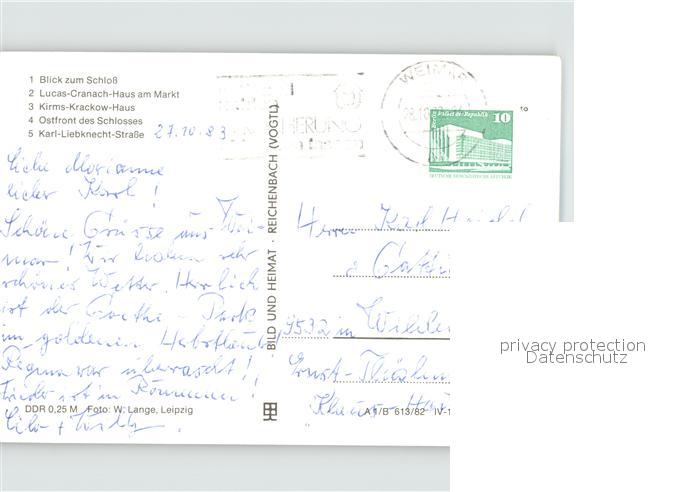 1 Blick zum Schloß
2 Lucas-Cranach-Haus am Markt
3 Kirms-Krackow-Haus
4 Ostfront des Schlosses
5 Karl-Liebknecht-Straße
27.10.83
Liebe Marianne
lieber Karl!
Schöne Grüsse aus Wei-
mar! Wir haben sehr
schönes Wetter. Herrlich
ist der Goethe-Park
im goldenen Herbstlaub,
Regina war überrascht!
ist in
DDR 0,25 M Foto: W. Lange, Leipzig
BILD UND HEIMAT · REICHENBACH (VOGTL)
WEIMAR
10
Palast der Republik
DEUTSCHE DEMOKRATISCHE REPUBLIK
Herrn Karl
9532 in
Ernst-
A 1/B 613/82 IV-1
privacy protection
Datenschutz